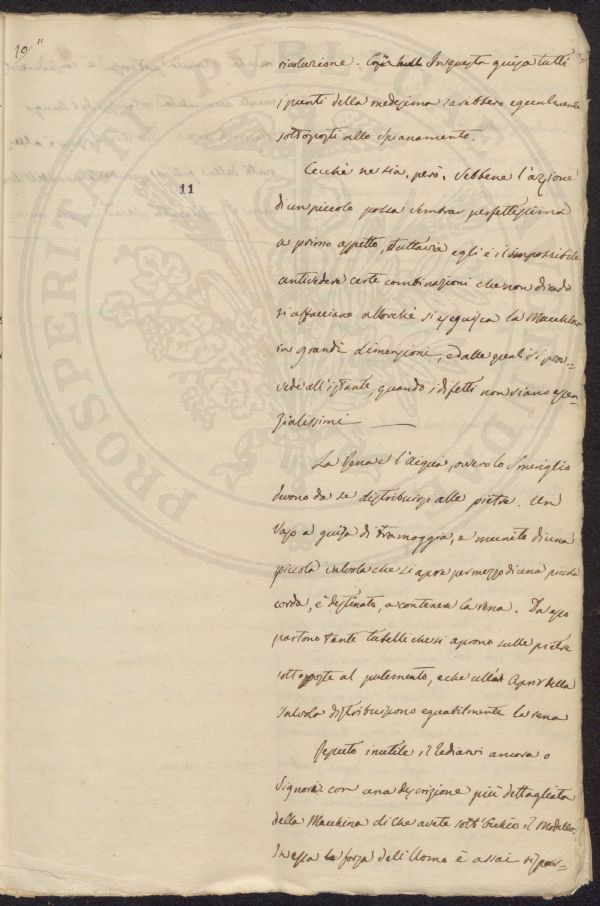 10"
rivoluzione. In questa guisa tutti
i punti della medesima sarebbero egualmente
sottoposti allo spianamento.
Cecchè ne sia, però, sebbene l'azione
di un piccolo possa sembrar perfettissima
a primo aspetto, tuttavia egli è impossibile
antivedere certe combinazioni che non di rado
si affacciano allorchè si eseguisca la Macchina
in grandi dimensioni, e dalle quali si prov-
vede all'istante, quando i difetti non siano essen-
zialissimi —
11
La Rena e l'Acqua, ovvero lo Smeriglio
devono da se distribuirsi alle pietre. Un
vaso a guisa di tramoggia, e munito di una
piccola valvola che si apre per mezzo di una piccola
corda, è destinato, a contenere la rena. Da esso
partono tante tubelle che si aprono sulle pietre
sottoposte al pulimento, e che all' aprir della
valvola distribuiscono equabilmente la rena
Reputo inutile il tediarvi ancora o
Signori con una descrizione più dettagliata
della Macchina di che avete sott'occhio il Modello.
In essa la forza dell'Uomo è assai rispar-
PROSPERITATI PUBLICAE